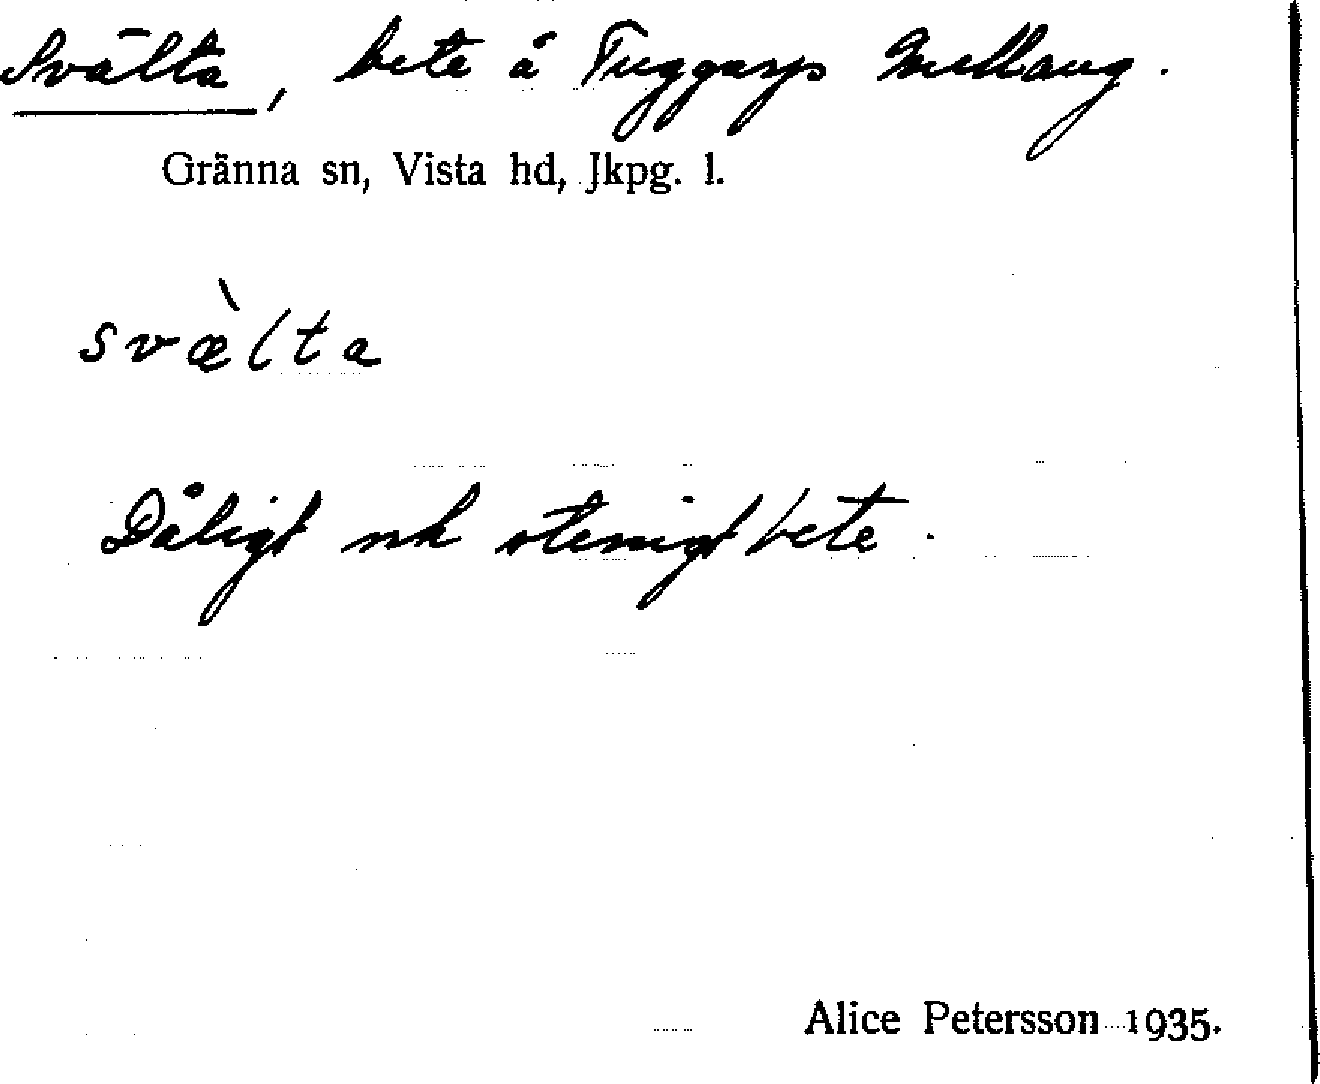 Svälta, bete å Tuggarps Mellang.
Gränna sn, Vista hd, Jkpg. l.
svæ̀lta
Dåligt och stenigt bete.
Alice Petersson 1935.